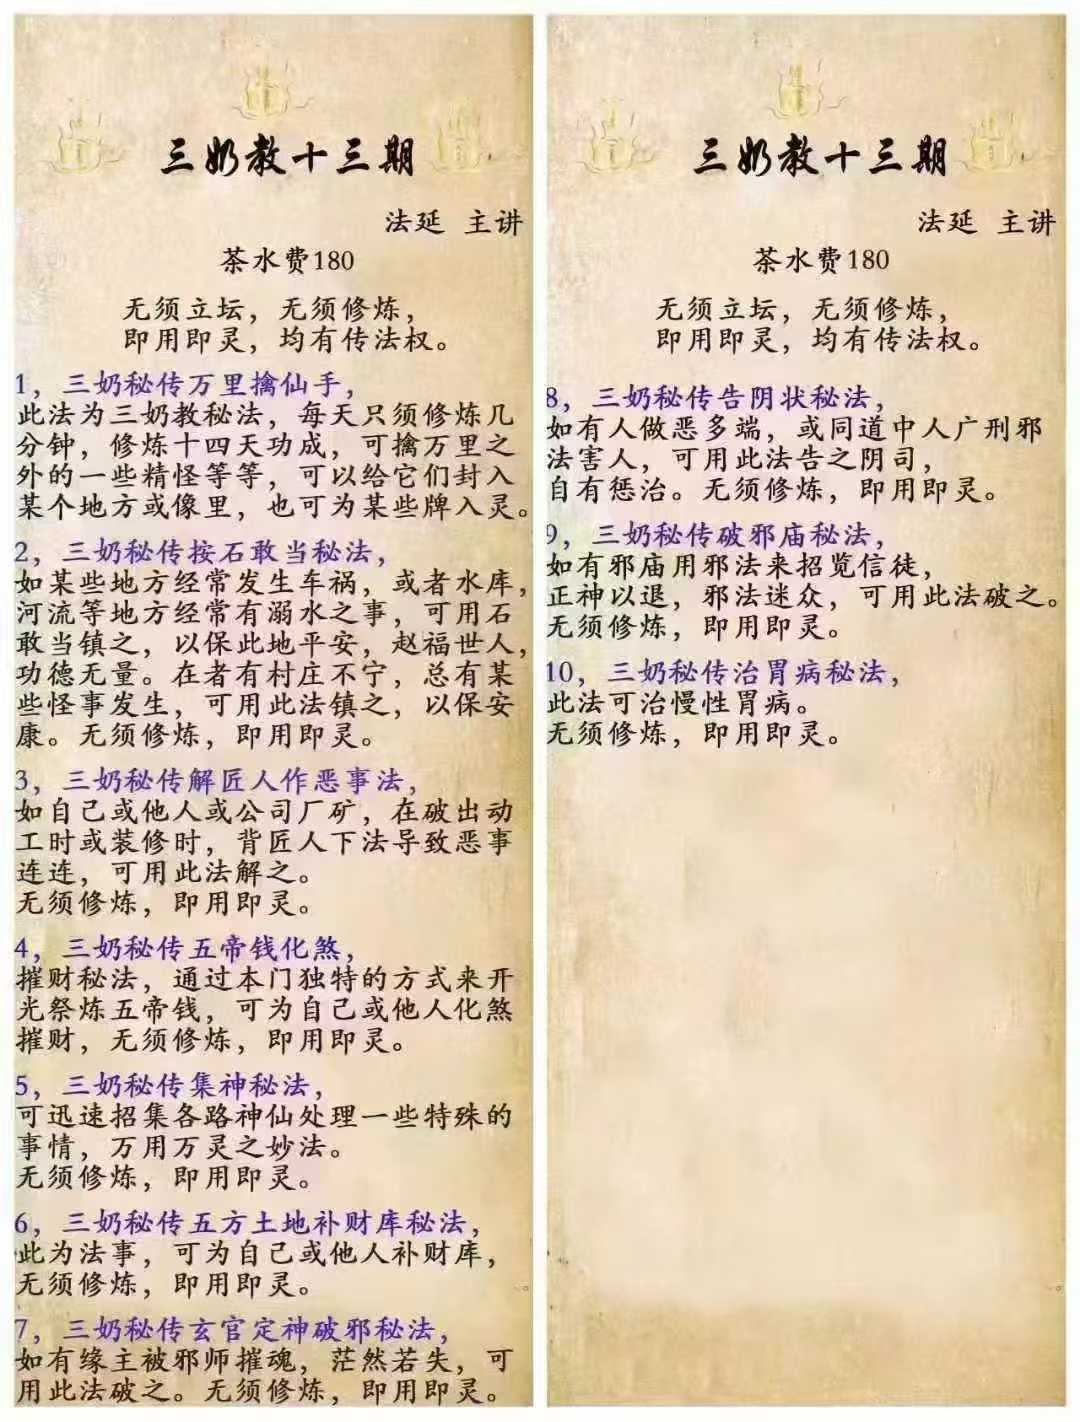 三奶教十三期
法延 主讲
茶水费180
无须立坛，无须修炼，
即用即灵，均有传法权。
1，三奶秘传万里擒仙手，
此法为三奶教秘法，每天只须修炼几
分钟，修炼十四天功成，可擒万里之
外的一些精怪等等，可以给它们封入
某个地方或像里，也可为某些牌入灵。
2，三奶秘传按石敢当秘法，
如某些地方经常发生车祸，或者水库，
河流等地方经常有溺水之事，可用石
敢当镇之，以保此地平安，赵福世人，
功德无量。在者有村庄不宁，总有某
些怪事发生，可用此法镇之，以保安
康。无须修炼，即用即灵。
3，三奶秘传解匠人作恶事法，
如自己或他人或公司厂矿，在破出动
工时或装修时，背匠人下法导致恶事
连连，可用此法解之。
无须修炼，即用即灵。
4，三奶秘传五帝钱化煞，
摧财秘法，通过本门独特的方式来开
光祭炼五帝钱，可为自己或他人化煞
摧财，无须修炼，即用即灵。
5，三奶秘传集神秘法，
可迅速招集各路神仙处理一些特殊的
事情，万用万灵之妙法。
无须修炼，即用即灵。
6，三奶秘传五方土地补财库秘法，
此为法事，可为自己或他人补财库，
无须修炼，即用即灵。
7，三奶秘传玄官定神破邪秘法，
如有缘主被邪师摧魂，茫然若失，可
用此法破之。无须修炼，即用即灵。
三奶教十三期
法延 主讲
茶水费180
无须立坛，无须修炼，
即用即灵，均有传法权。
8，三奶秘传告阴状秘法，
如有人做恶多端，或同道中人广刑邪
法害人，可用此法告之阴司，
自有惩治。无须修炼，即用即灵。
9，三奶秘传破邪庙秘法，
如有邪庙用邪法来招览信徒，
正神以退，邪法迷众，可用此法破之。
无须修炼，即用即灵。
10，三奶秘传治胃病秘法，
此法可治慢性胃病。
无须修炼，即用即灵。